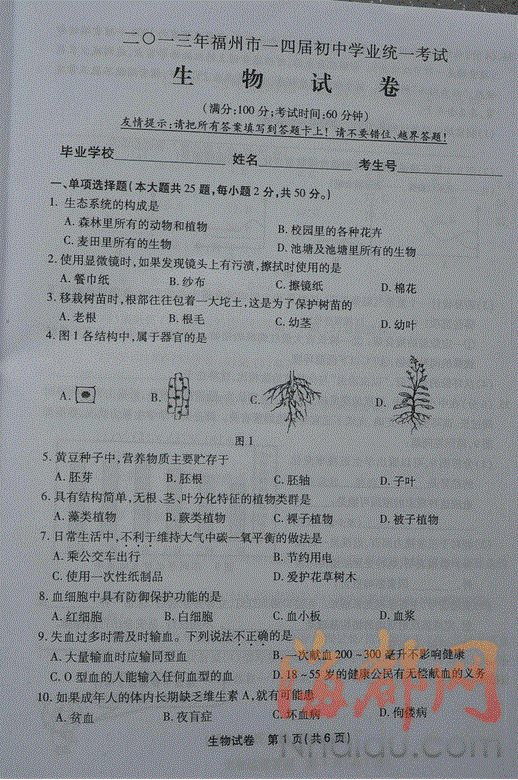 二〇一三年福州市一四届初中学业统一考试
生 物 试 卷
(满分:100分;考试时间:60分钟)
友情提示:请把所有答案填写到答题卡上!请不要错位、越界答题!
毕业学校 姓名 考生号
一、单项选择题(本大题共25题,每小题2分,共50分。)
1. 生态系统的构成是
A. 森林里所有的动物和植物 B. 校园里的各种花卉
C. 麦田里所有的生物 D. 池塘及池塘里所有的生物
2. 使用显微镜时,如果发现镜头上有污渍,擦拭时使用的是
A. 餐巾纸 B. 纱布 C. 擦镜纸 D. 棉花
3. 移栽树苗时,根部往往包着一大坨土,这是为了保护树苗的
A. 老根 B. 根毛 C. 幼茎 D. 幼叶
4. 图1各结构中,属于器官的是
A. B. C. D.
图1
5. 黄豆种子中,营养物质主要贮存于
A. 胚芽 B. 胚根 C. 胚轴 D. 子叶
6. 具有结构简单,无根、茎、叶分化特征的植物类群是
A. 藻类植物 B. 蕨类植物 C. 裸子植物 D. 被子植物
7. 日常生活中,不利于维持大气中碳—氧平衡的做法是
A. 乘公交车出行 B. 节约用电
C. 使用一次性纸制品 D. 爱护花草树木
8. 血细胞中具有防御保护功能的是
A. 红细胞 B. 白细胞 C. 血小板 D. 血浆
9. 失血过多时需及时输血。下列说法不正确的是
A. 大量输血时应输同型血 B. 一次献血200~300毫升不影响健康
C. O型血的人能输入任何血型的血 D. 18~55岁的健康公民有无偿献血的义务
10. 如果成年人的体内长期缺乏维生素A,就有可能患
A. 贫血 B. 夜盲症 C. 坏血病 D. 佝偻病
生物试卷 第1页(共6页)
海都网
Nhaidu.com